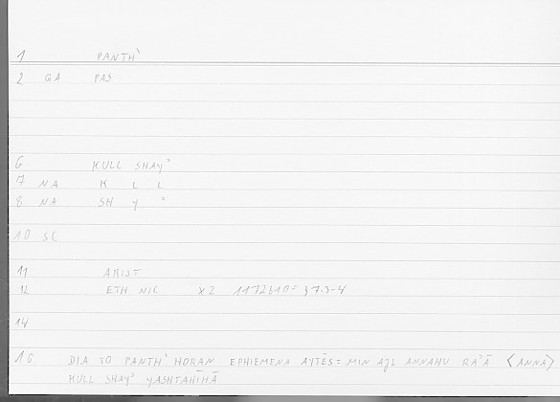 1 PANTH'
2 GA PAS
6 KULL SHAY'
7 NA K L L
8 NA SH Y '
10 SC
11 ARIST
12 ETH NIC X2 1172b10 = 37.3-4
14
16 DIA TO PANTH' HORAN EPHIEMENA AYTĒS = MIN AJL ANNAHU RA'Ā <ANNA>
KULL SHAY' YASHTAHĪHĀ